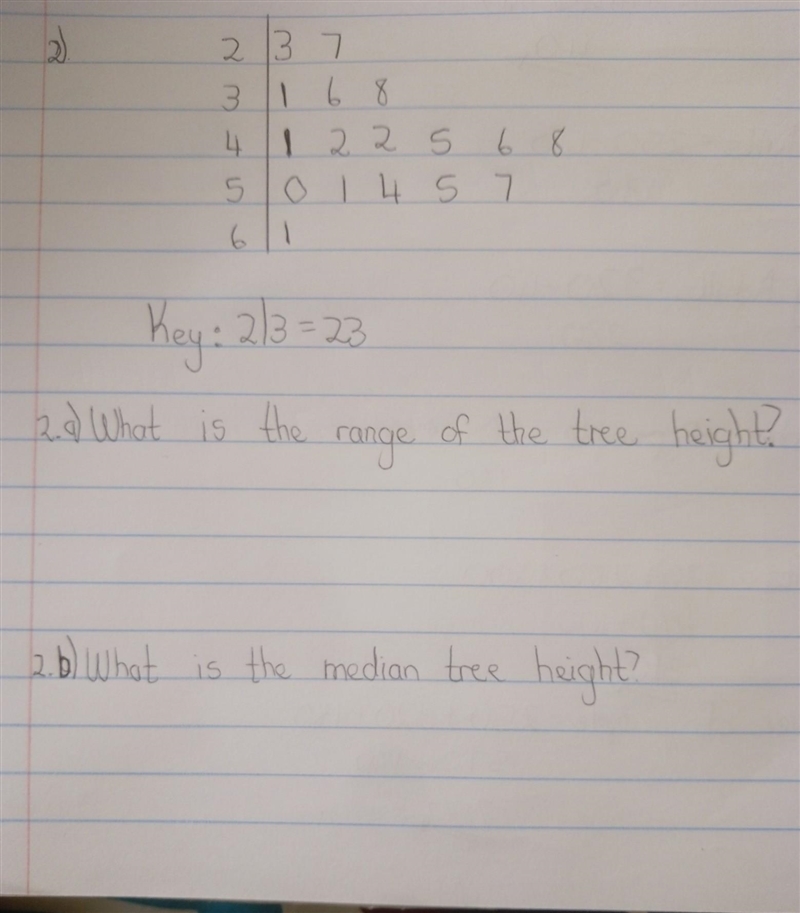 2) 2 | 3 7
3 | 1 6 8
4 | 1 2 2 5 6 8
5 | 0 1 4 5 7
6 | 1
Key: 2|3 = 23
2.a) What is the range of the tree height?
2.b) What is the median tree height?